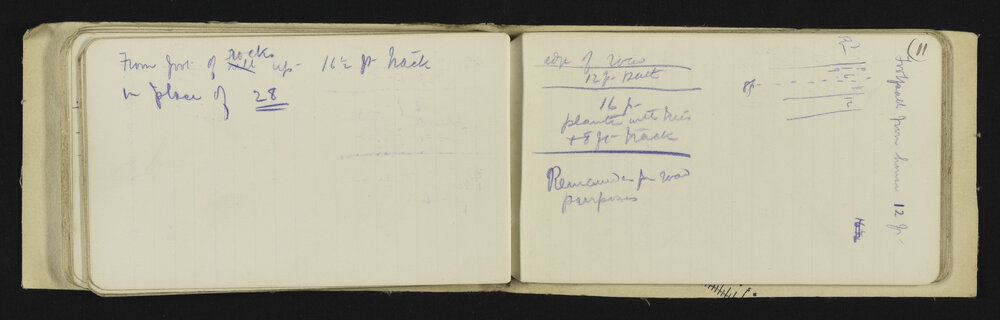 From foot of rocks up 16½ ft track
in place of 28
edge of road
12 ft path
16 ft
planted with trees
+ 8 ft track
Remainder for road
purposes
11
Footpath from 12 ft
16
12